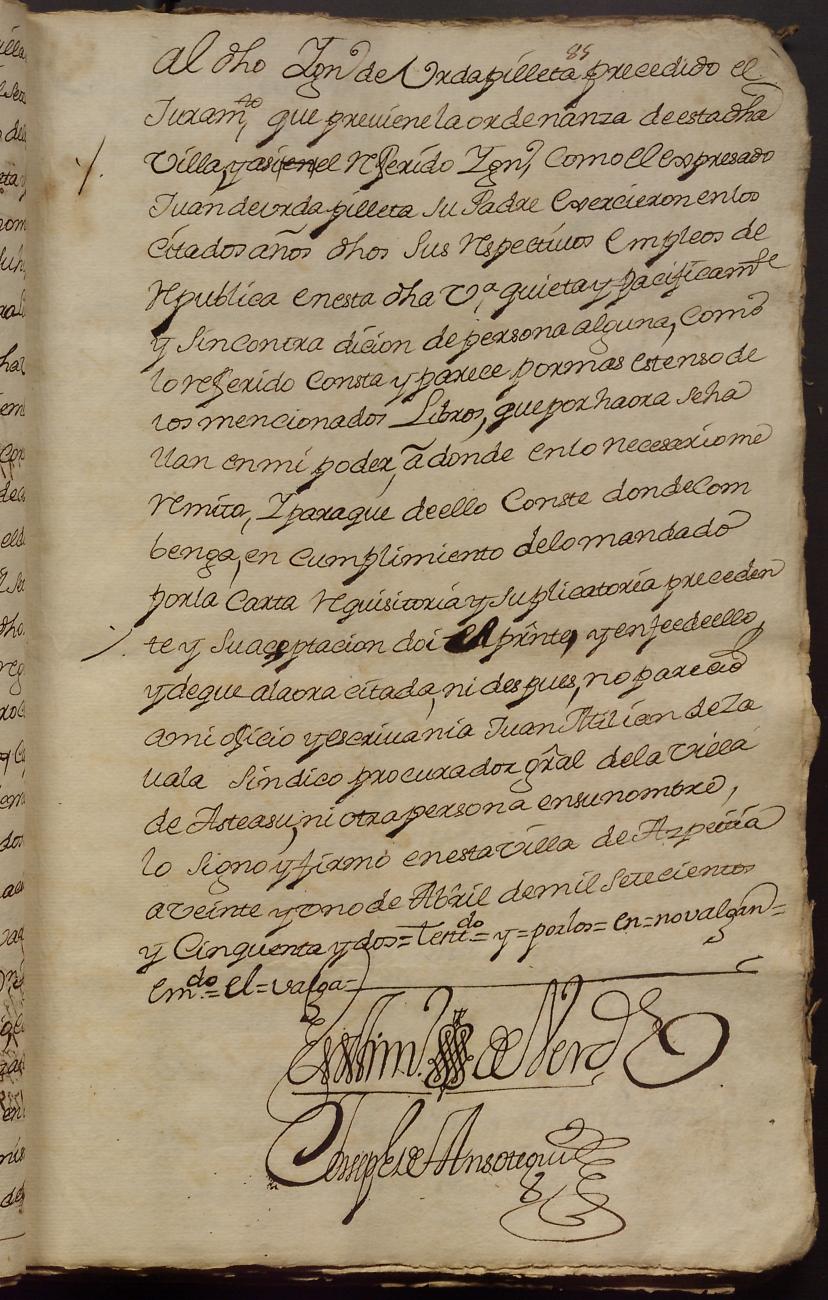 85
al dho Ygn.º de Urdapilleta precedido el
Juram.to que previene la ordenanza de esta dha
Villa, y asi en el referido Ygn.º como el expresado
Juan de urdapilleta su Padre exercieron en los
citados años dhos sus respectivos empleos de
republica en esta dha V.ª quieta y pacificam.te
y sin contradicion de persona alguna, como
lo referido consta y parece por mas estenso de
los mencionados Libros, que por haora se ha
llan en mi poder, a donde en lo necesario me
remito, Y para que de ello conste donde com
benga, en cumplimiento de lo mandado
por la Carta requisitoria y suplicatoria preceden
te y su aceptacion doi el prnte, y en fee de ello,
y de que a la ora citada, ni despues, no parecio
a mi oficio y escrivania Juan Milian de Za
vala Sindico procurador gral de la villa
de Asteasu, ni otra persona en su nombre,
lo signo y firmo en esta villa de Azpeitia
a veinte y uno de Abril de mil setecientos
y Cinquenta y dos= testdo= y= por los= en= no valgan=
Em.do= el= valga=
En testim.º de Verd
Joseph de Ansotegui